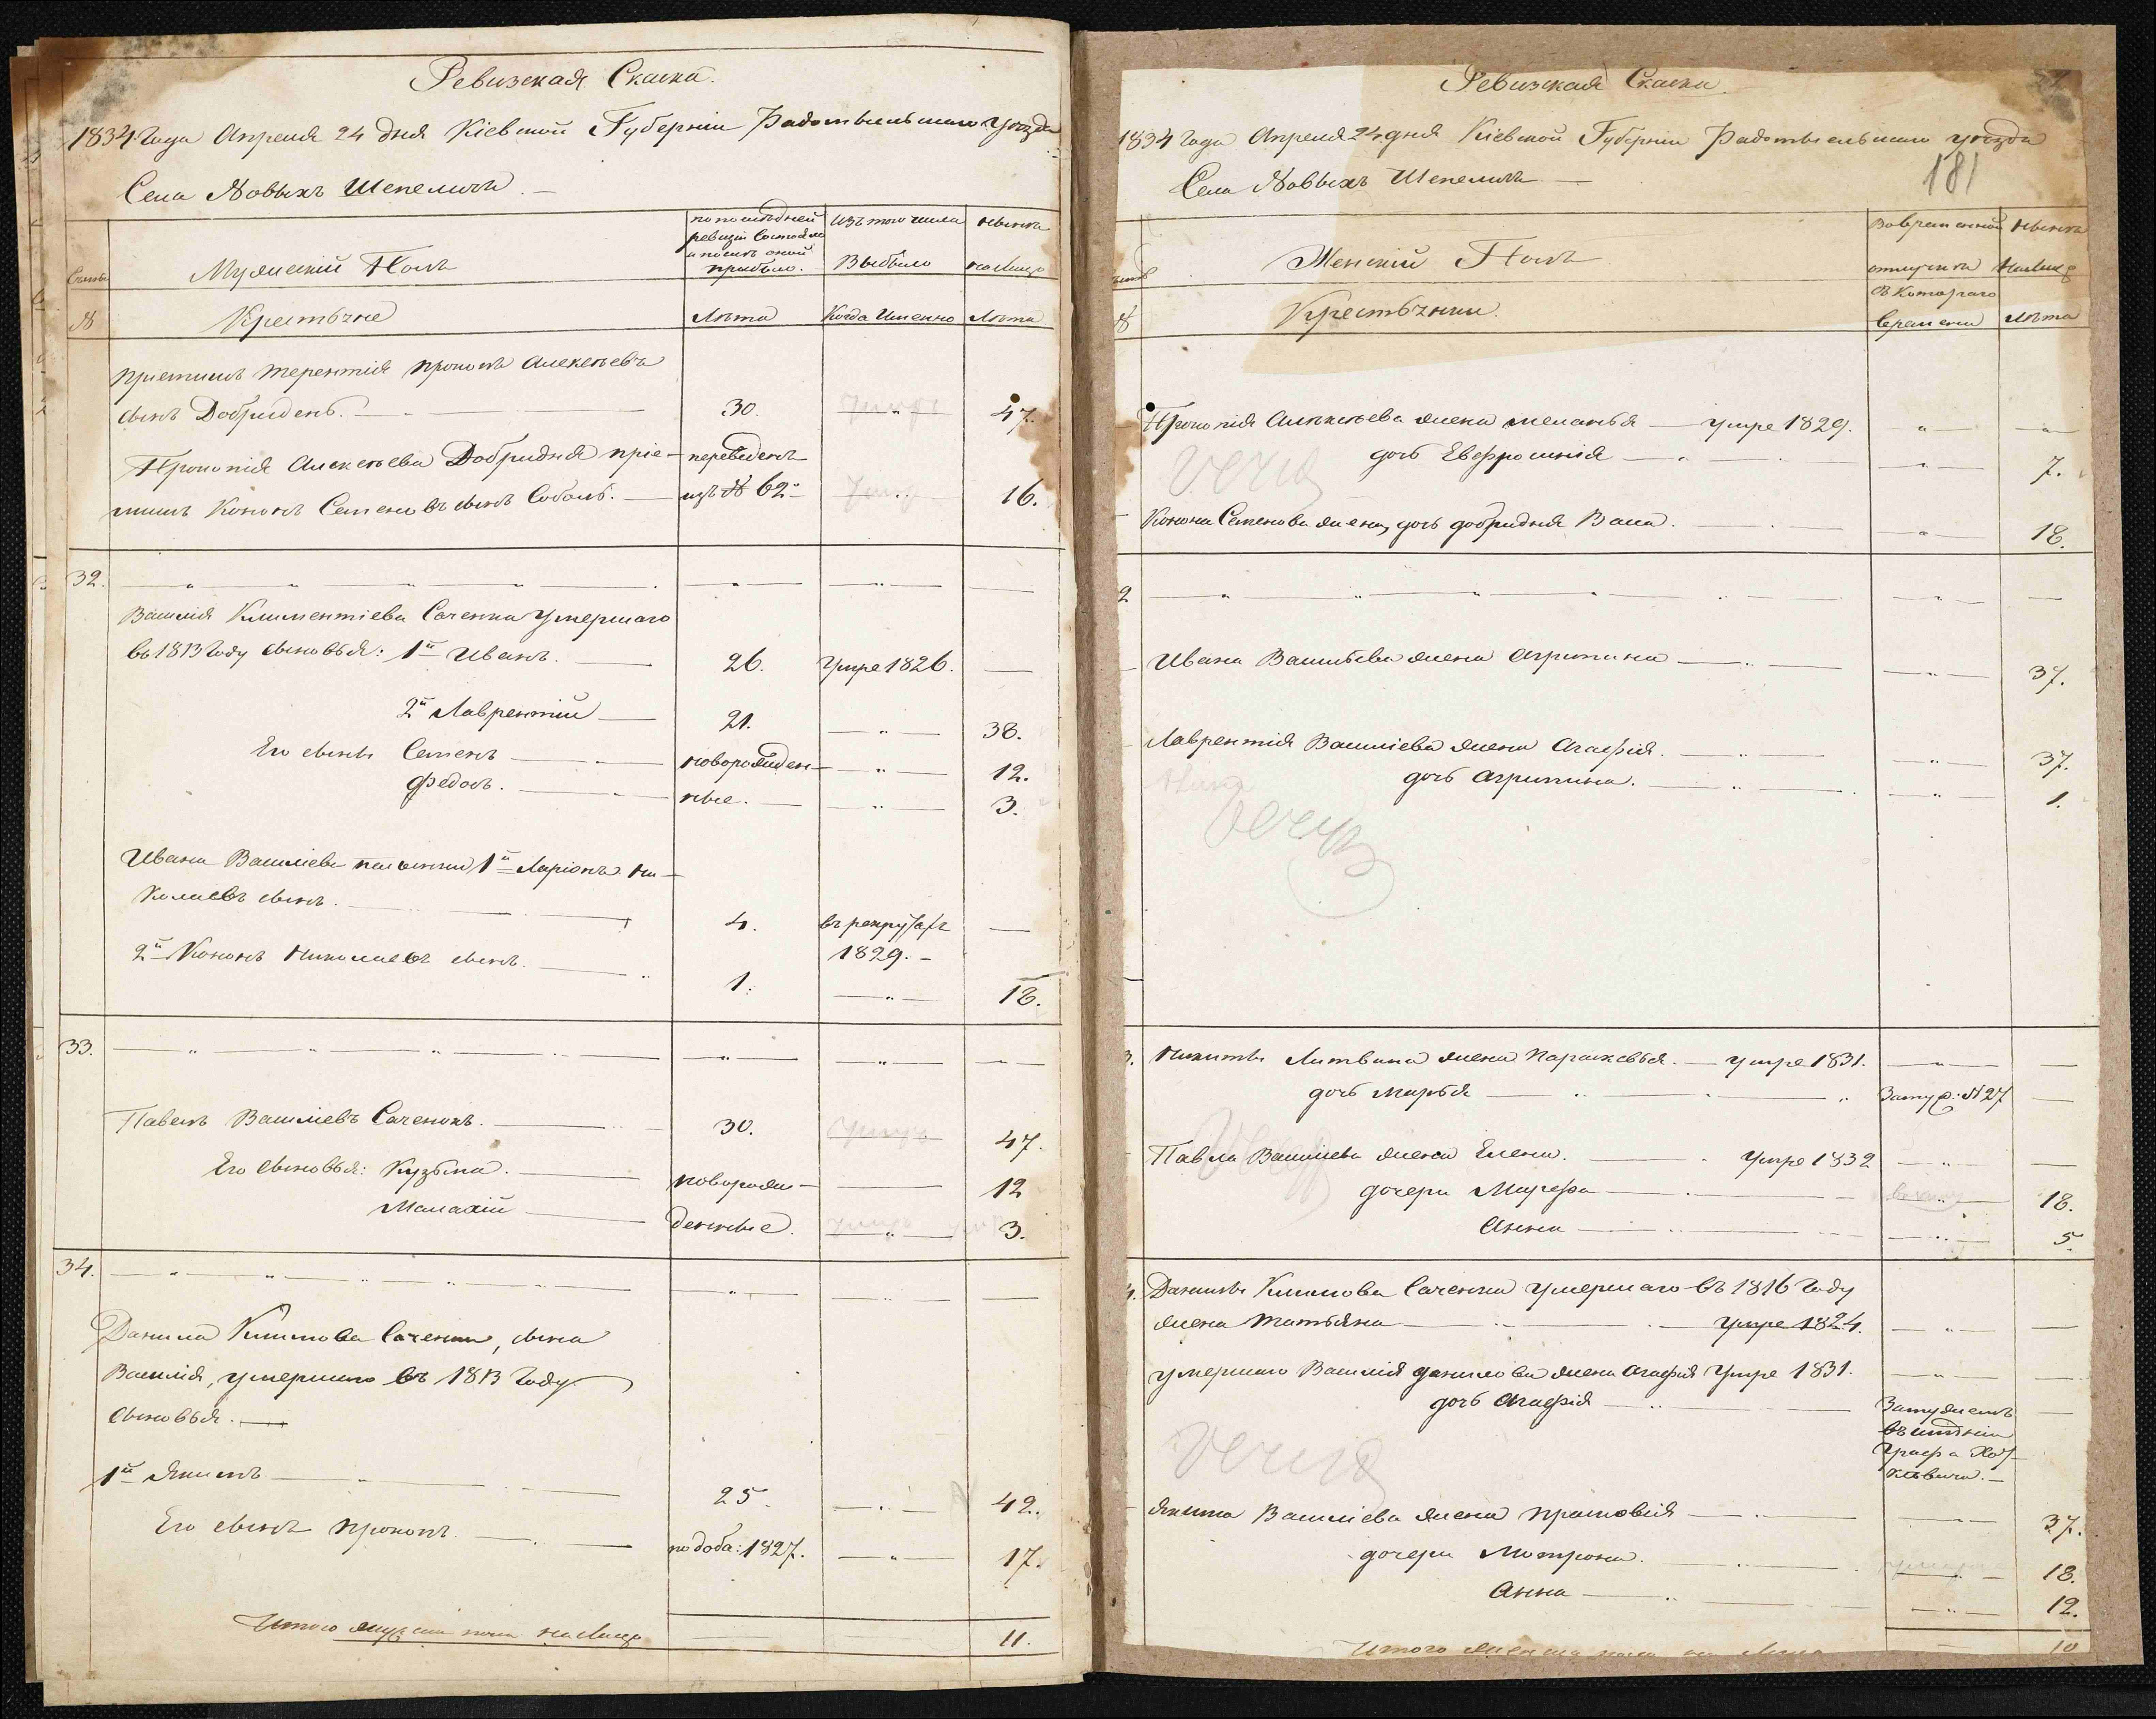 Ревизская Сказка.
1834 Года Апреля 24 дня Кіевской Губерніи Радомысльскаго уезда
Села Новыхъ Шепеличъ. —
Семьи
№
Мужескій Полъ
Крестьяне
по последней ревизіи состояло и после оной прибыло.
Лета
Изъ того числа Выбыло
Когда Именно
Ныне на лицо
Лета
Приемышъ Терентія Прокопъ Алексеевъ
сынъ Добридень. — 30. 47.
Прокопія Алексеева Добридня пріе- переведенъ
мышъ Кононъ Семеновъ сынъ Соболь. — изъ № 62 16.
32.
Василія Климентіева Саченка умершаго
въ 1813 Году сыновья: 1й Иванъ. — 26. Умре 1826. —
2й Лаврентій — 21. — 38.
Его сынъ Семенъ — новорожден- — 12.
Федосъ. — ные. — 3.
Ивана Василіева 1й Ларіонъ Ни-
колаевъ сынъ. — 4. въ рекрутахъ —
1829. —
2й Кононъ Николаевъ сынъ. — 1. — 18.
33.
Павелъ Василіевъ Саченокъ. — 30. 47.
Его сыновья: Кузьма. — новорож- — 12
Малахій — денные. 3.
34.
Данила Климова Саченка, сына
Василія, умершаго въ 1813 Году
сыновья. —
1й Якимъ — 25. — 42.
Его сынъ Прокопъ. — 1827. — 17.
Итого мужска пола на лицо 11.
Ревизская Сказка.
1834 Года Апреля 24 дня Кіевской Губерніи Радомысльскаго уезда
Села Новыхъ Шепеличъ —
181
№
Женскій Полъ
Крестьянки.
Во временной отлучке
съ Котораго времени
Ныне Налицо
Лета
Прокопія Алексеева жена Меланья — умре 1829. —
дочь Евфросинія — 7.
Конона Семенова жена, дочь Добридня Васа. — 18.
2
Ивана Василіева жена Агрипина — 37.
Лаврентія Василіева жена Агафія. — 37.
дочь Агрипина. — 1.
3. Никиты Литвина жена Параскевья. — умре 1831. —
дочь Марья — Замуж: №27 —
Павла Василіева жена Елена. — умре 1832 —
дочери Марфа — 18.
Анна — 5.
4. Данилы Климова Саченка умершаго въ 1816 Году
жена Татьяна — умре 1824. —
умершаго Василія Данилова жена Агафія Умре 1831. —
дочь Агафія — Замужемъ —
въ именіи
Графа Ход-
кевича. —
Якима Василіева жена Прасковія — 37.
дочери Мотрона. — 18.
Анна — 12.
Итого женска пола на лицо 10